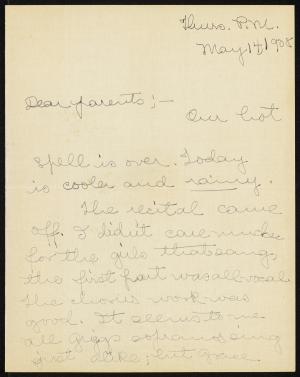 Thurs. P.M.
May 14, 1908
Dear parents;—
Our hot
spell is over. Today
is cooler and rainy.
The recital came
off. I didn't care much
for the girls that sang,
the first part was all vocal.
The chorus work was
good. It seems to me
all Griggs sopranos sing
just alike; but Grace